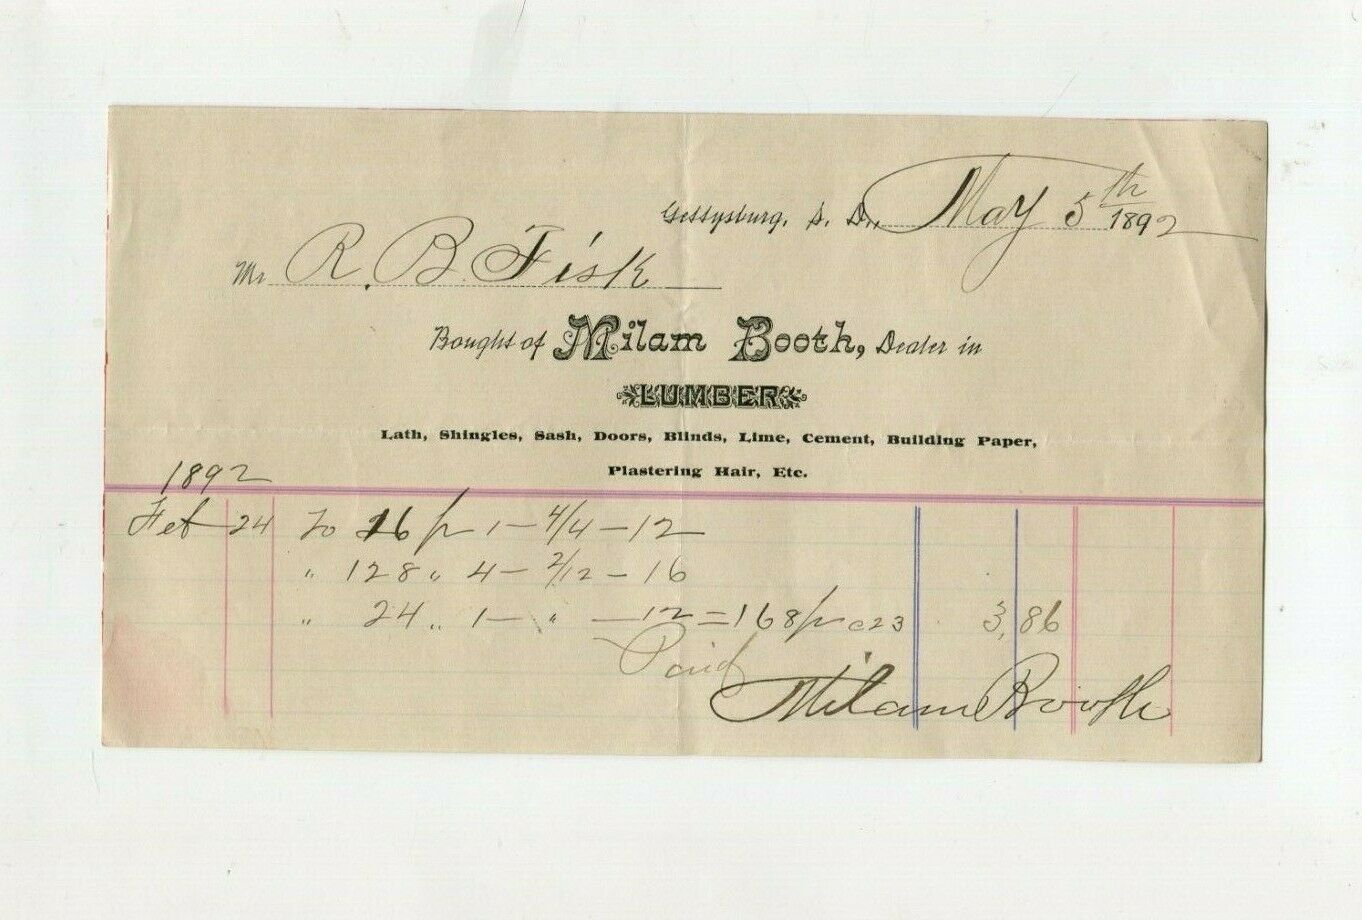 Gettysburg, S. D., May 5th 1892
Mr R. B. Fisk
Bought of Milam Booth, Dealer in
LUMBER
Lath, Shingles, Sash, Doors, Blinds, Lime, Cement, Building Paper,
Plastering Hair, Etc.
1892
Feb 24 To 16 p 1 - 4/4 - 12
" 128 " 4 - 2/12 - 16
" 24 " 1 - " - 12 = 168 p c 23 3,86
Paid
Milam Booth